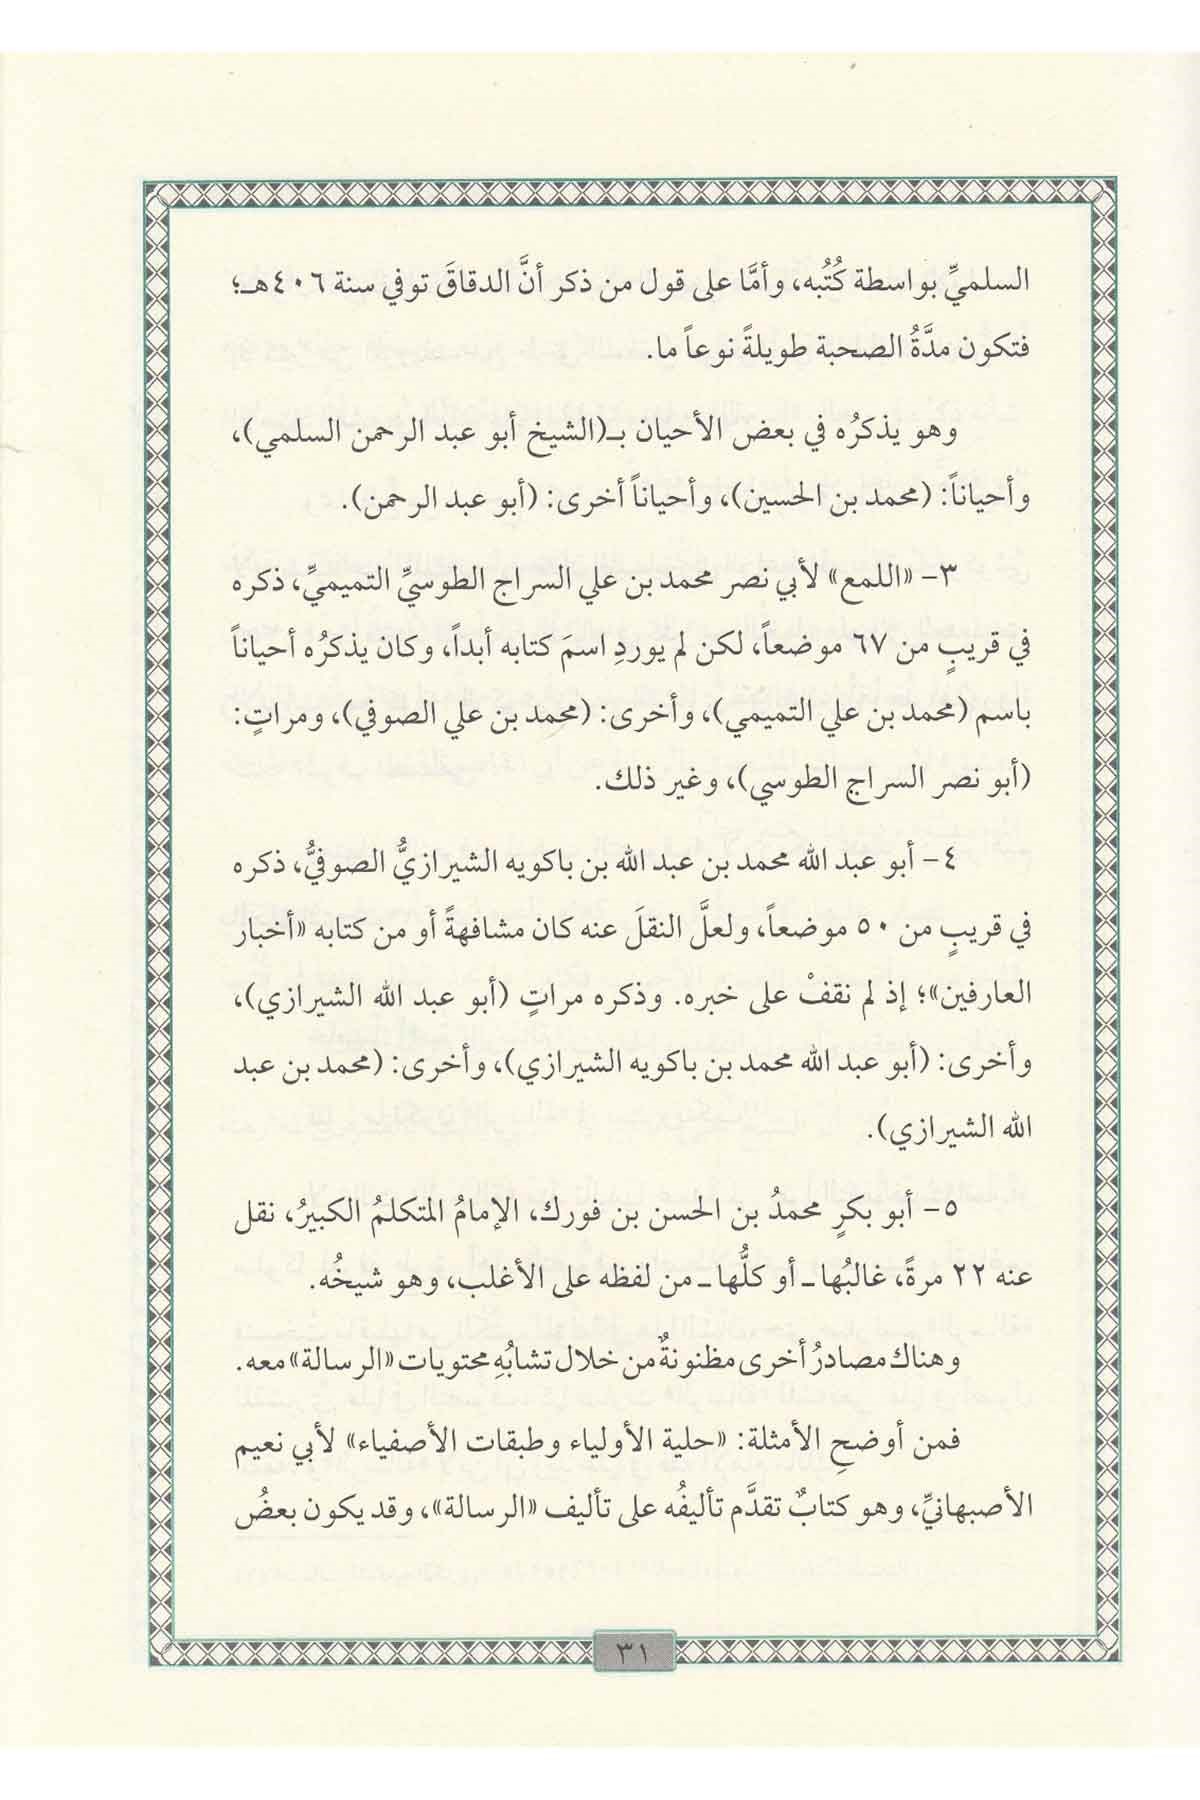 السلميِّ بواسطة كُتُبه، وأمَّا على قول من ذكر أنَّ الدقاقَ توفي سنة ٤٠٦هـ؛
فتكون مدَّةُ الصحبة طويلةً نوعاً ما.
وهو يذكرُه في بعض الأحيان بـ(الشيخ أبو عبد الرحمن السلمي)،
وأحياناً: (محمد بن الحسين)، وأحياناً أخرى: (أبو عبد الرحمن).
٣- «اللمع» لأبي نصر محمد بن علي السراج الطوسيِّ التميميِّ، ذكره
في قريبٍ من ٦٧ موضعاً، لكن لم يوردِ اسمَ كتابه أبداً، وكان يذكرُه أحياناً
باسم (محمد بن علي التميمي)، وأخرى: (محمد بن علي الصوفي)، ومراتٍ:
(أبو نصر السراج الطوسي)، وغير ذلك.
٤- أبو عبد الله محمد بن عبد الله بن باكويه الشيرازيُّ الصوفيُّ، ذكره
في قريبٍ من ٥٠ موضعاً، ولعلَّ النقلَ عنه كان مشافهةً أو من كتابه «أخبار
العارفين»؛ إذ لم نقفْ على خبره. وذكره مراتٍ (أبو عبد الله الشيرازي)،
وأخرى: (أبو عبد الله محمد بن باكويه الشيرازي)، وأخرى: (محمد بن عبد
الله الشيرازي).
٥- أبو بكرٍ محمدُ بن الحسن بن فورك، الإمامُ المتكلمُ الكبيرُ، نقل
عنه ٢٢ مرةً، غالبُها ـ أو كلُّها ـ من لفظه على الأغلب، وهو شيخُه.
وهناك مصادرُ أخرى مظنونةٌ من خلال تشابُهِ محتويات «الرسالة» معه.
فمن أوضحِ الأمثلة: «حلية الأولياء وطبقات الأصفياء» لأبي نعيم
الأصبهانيِّ، وهو كتابٌ تقدَّم تأليفُه على تأليف «الرسالة»، وقد يكون بعضُ
٣١